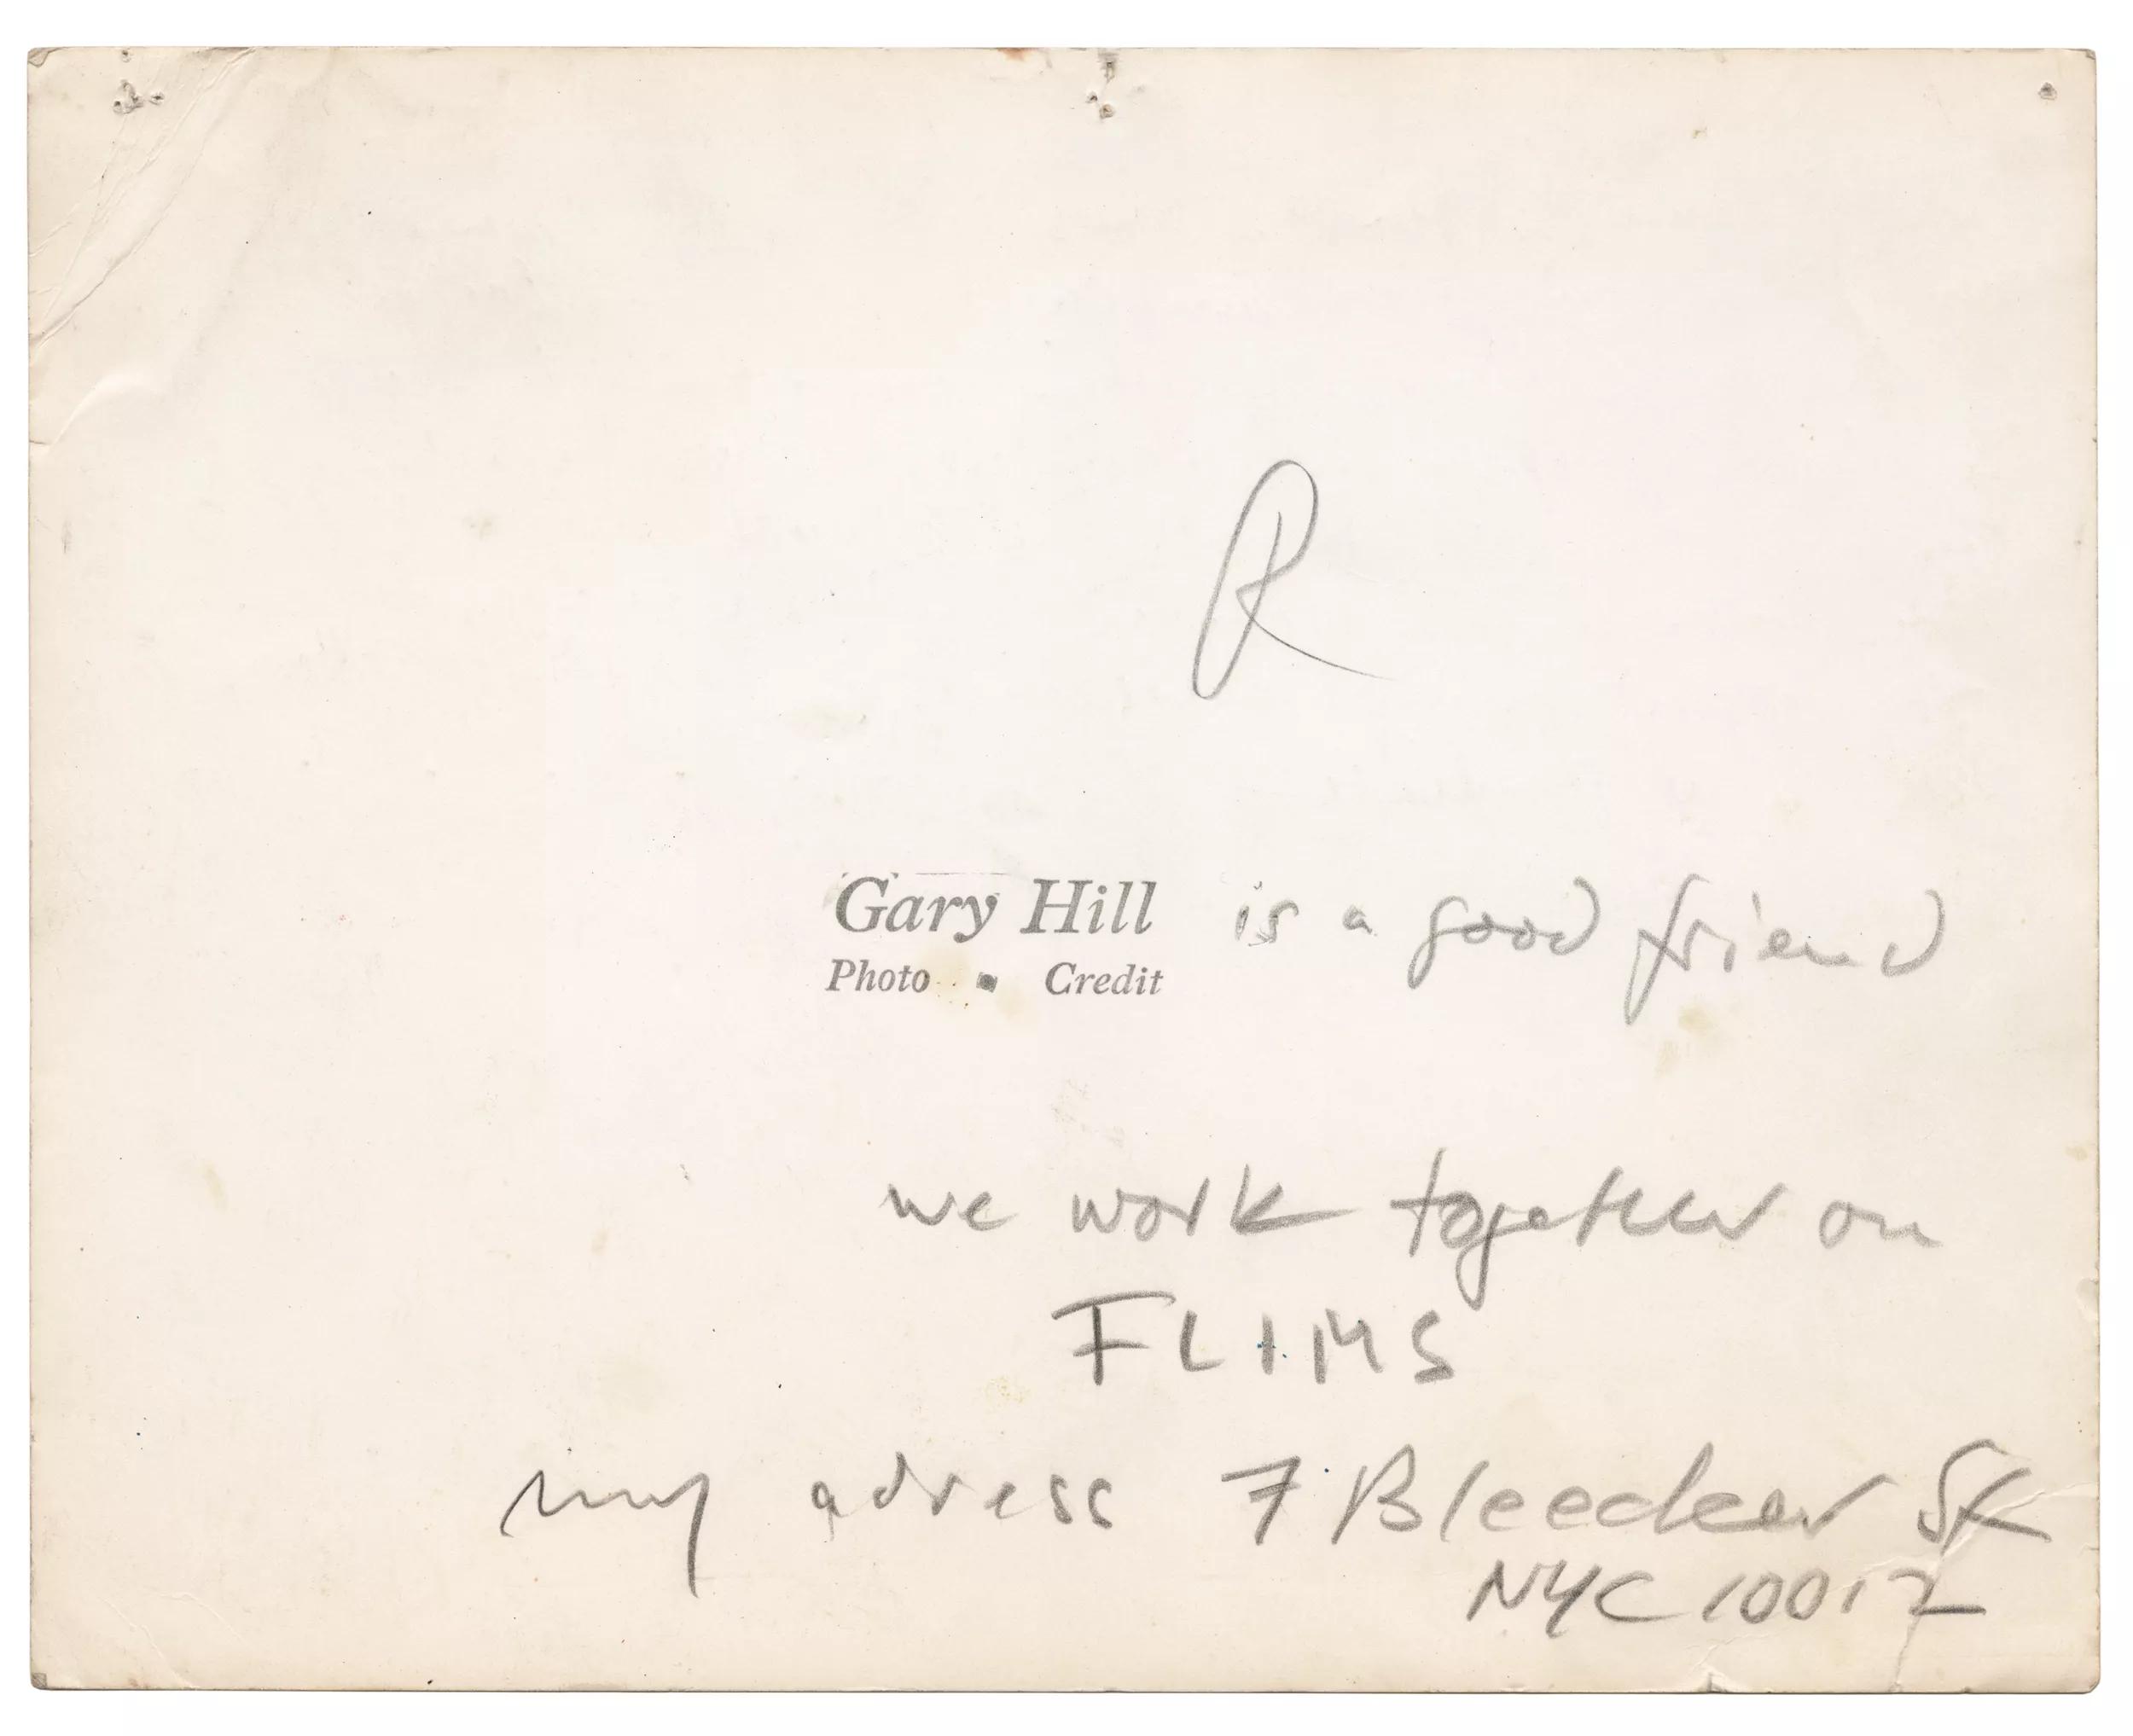 R
Gary Hill is a good friend
Photo ▪ Credit
we work together on
FLIMS
my adress 7 Bleecker St
NYC 10012